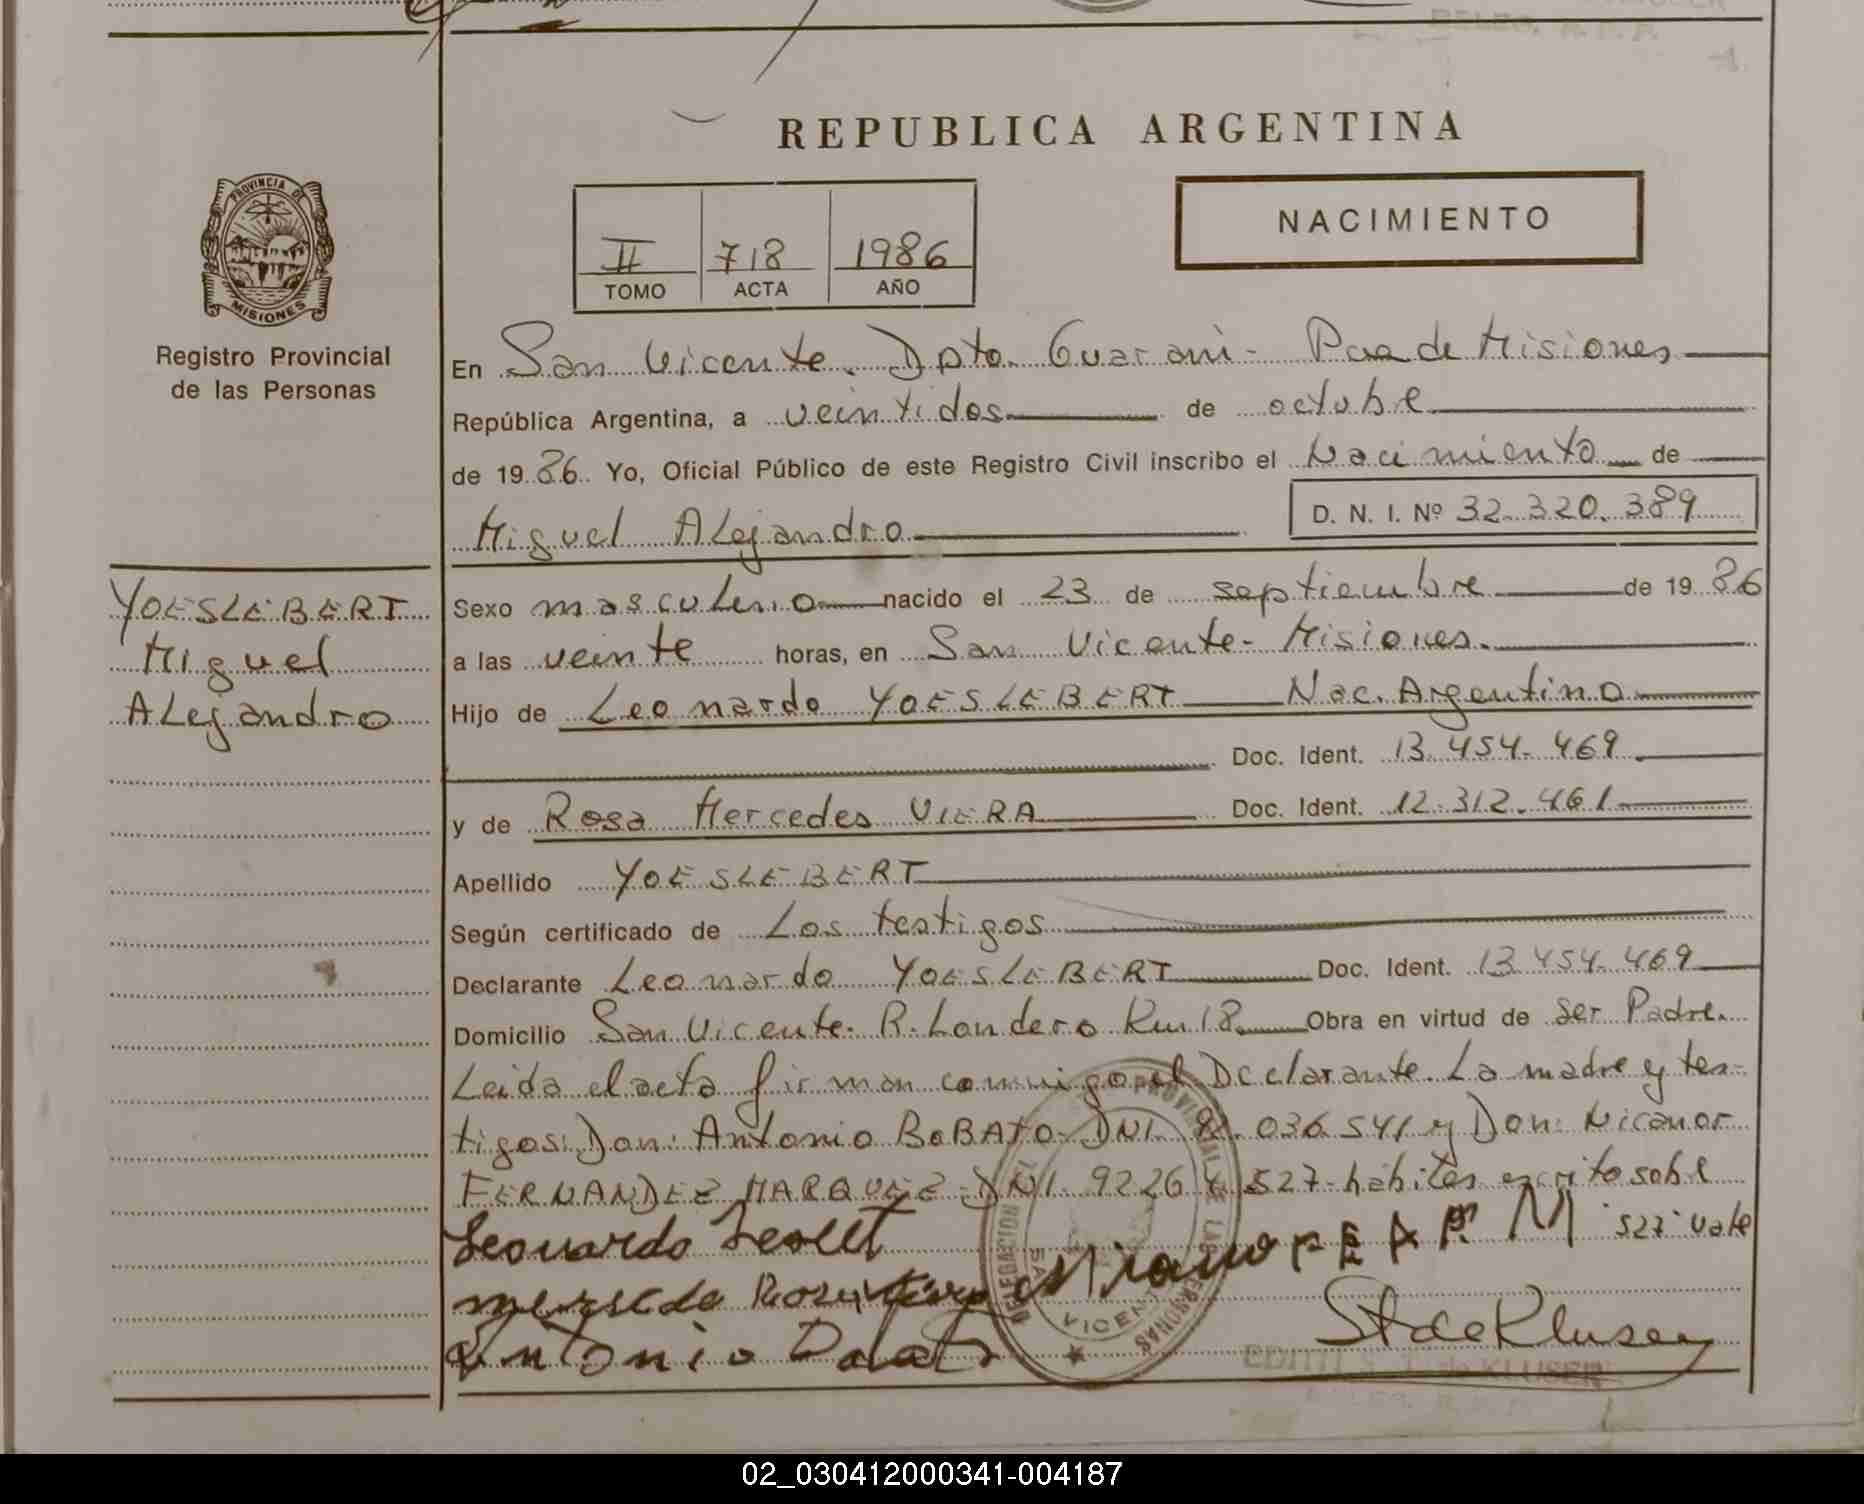 REPUBLICA ARGENTINA
PROVINCIA DE
MISIONES
Registro Provincial
de las Personas
II 718 1986
TOMO ACTA AÑO
NACIMIENTO
En San Vicente. Dpto. Guarani - Pcia de Misiones
República Argentina, a veintidos de octubre
de 1986. Yo, Oficial Público de este Registro Civil inscribo el Nacimiento de
Miguel Alejandro D. N. I. Nº 32.320.389
YOESLEBERT
Miguel
Alejandro
Sexo masculino nacido el 23 de septiembre de 1986
a las veinte horas, en San Vicente - Misiones.
Hijo de Leonardo YOESLEBERT Nac. Argentino
Doc. Ident. 13.454.469
y de Rosa Mercedes VIERA Doc. Ident. 12.312.461
Apellido YOESLEBERT
Según certificado de Los testigos
Declarante Leonardo YOESLEBERT Doc. Ident. 13.454.469
Domicilio San Vicente. R. Londero Km 18 Obra en virtud de ser Padre.
Leida el acta firman conmigo el Declarante. La madre y tes-
tigos: Don: Antonio BOBATO - DNI. 036.541 y Don: Nicanor
FERNANDEZ MARQUEZ - DNI. 9226 527 - habiles escrito sobre
Leonardo 527 vale
Antonio
St de Klusen
EDITH S. de KLUSEN
02_030412000341-004187